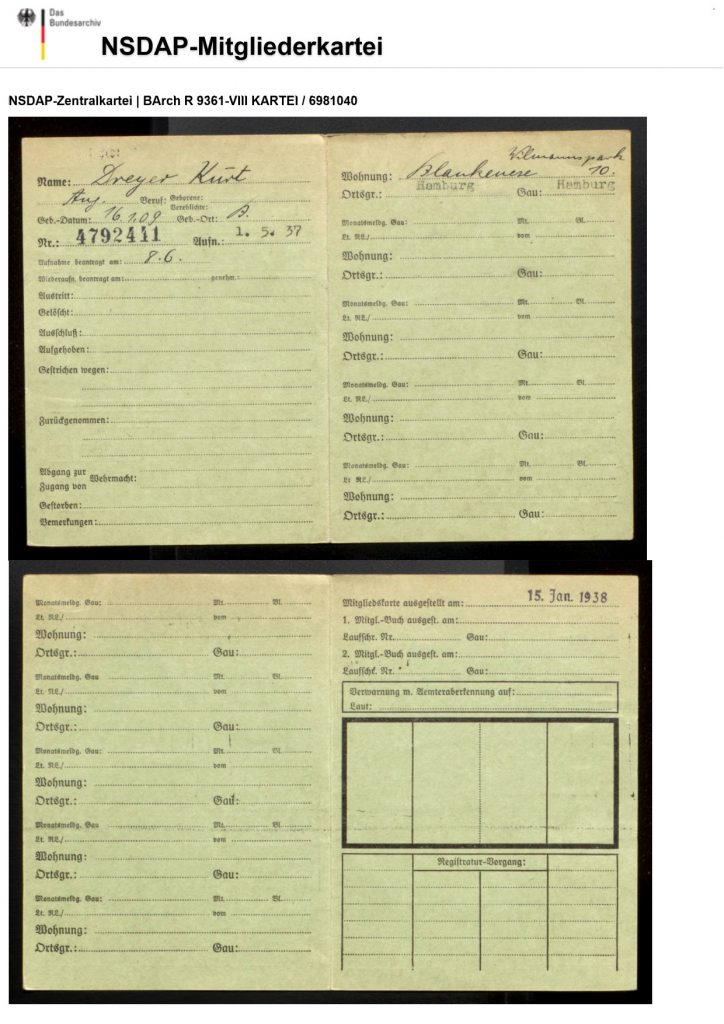 Das
Bundesarchiv
NSDAP-Mitgliederkartei
NSDAP-Zentralkartei | BArch R 9361-VIII KARTEI / 6981040
Name: Dreyer Kurt
Ang. Beruf: Geborene:
Verehlichte:
Geb.-Datum: 16.1.09 Geb.-Ort: B.
Nr.: 4792441 Aufn.: 1. 5. 37
Aufnahme beantragt am: 8.6.
Wiederaufn. beantragt am: genehm.:
Austritt:
Gelöscht:
Ausschluß:
Aufgehoben:
Gestrichen wegen:
Zurückgenommen:
Abgang zur
Zugang von Wehrmacht:
Gestorben:
Bemerkungen:
Wilmannspark
Wohnung: Blankenese 10.
Ortsgr.: Hamburg Gau: Hamburg
Monatsmeldg. Gau: Mt. Bl.
Lt. RL/ vom
Wohnung:
Ortsgr.: Gau:
Monatsmeldg. Gau: Mt. Bl.
Lt. RL/ vom
Wohnung:
Ortsgr.: Gau:
Monatsmeldg. Gau: Mt. Bl.
Lt. RL/ vom
Wohnung:
Ortsgr.: Gau:
Monatsmeldg. Gau: Mt. Bl.
Lt RL/ vom
Wohnung:
Ortsgr.: Gau:
Monatsmeldg. Gau: Mt. Bl.
Lt. RL/ vom
Wohnung:
Ortsgr.: Gau:
Monatsmeldg. Gau Mt. Bl.
Lt. RL/ vom
Wohnung:
Ortsgr.: Gau:
Monatsmeldg. Gau: Mt. Bl.
Lt. RL/ vom
Wohnung:
Ortsgr.: Gau:
Monatsmeldg. Gau Mt. Bl.
Lt. RL/ vom
Wohnung:
Ortsgr.: Gau:
Monatsmeldg. Gau: Mt. Bl.
Lt. RL/ vom
Wohnung:
Ortsgr.: Gau:
Mitgliedskarte ausgestellt am: 15. Jan. 1938
1. Mitgl.-Buch ausgest. am:
Laufschr. Nr. Gau:
2. Mitgl.-Buch ausgest. am:
Laufschr. Nr. Gau:
Verwarnung m. Aemteraberkennung auf:
Laut:
Registratur-Vorgang: